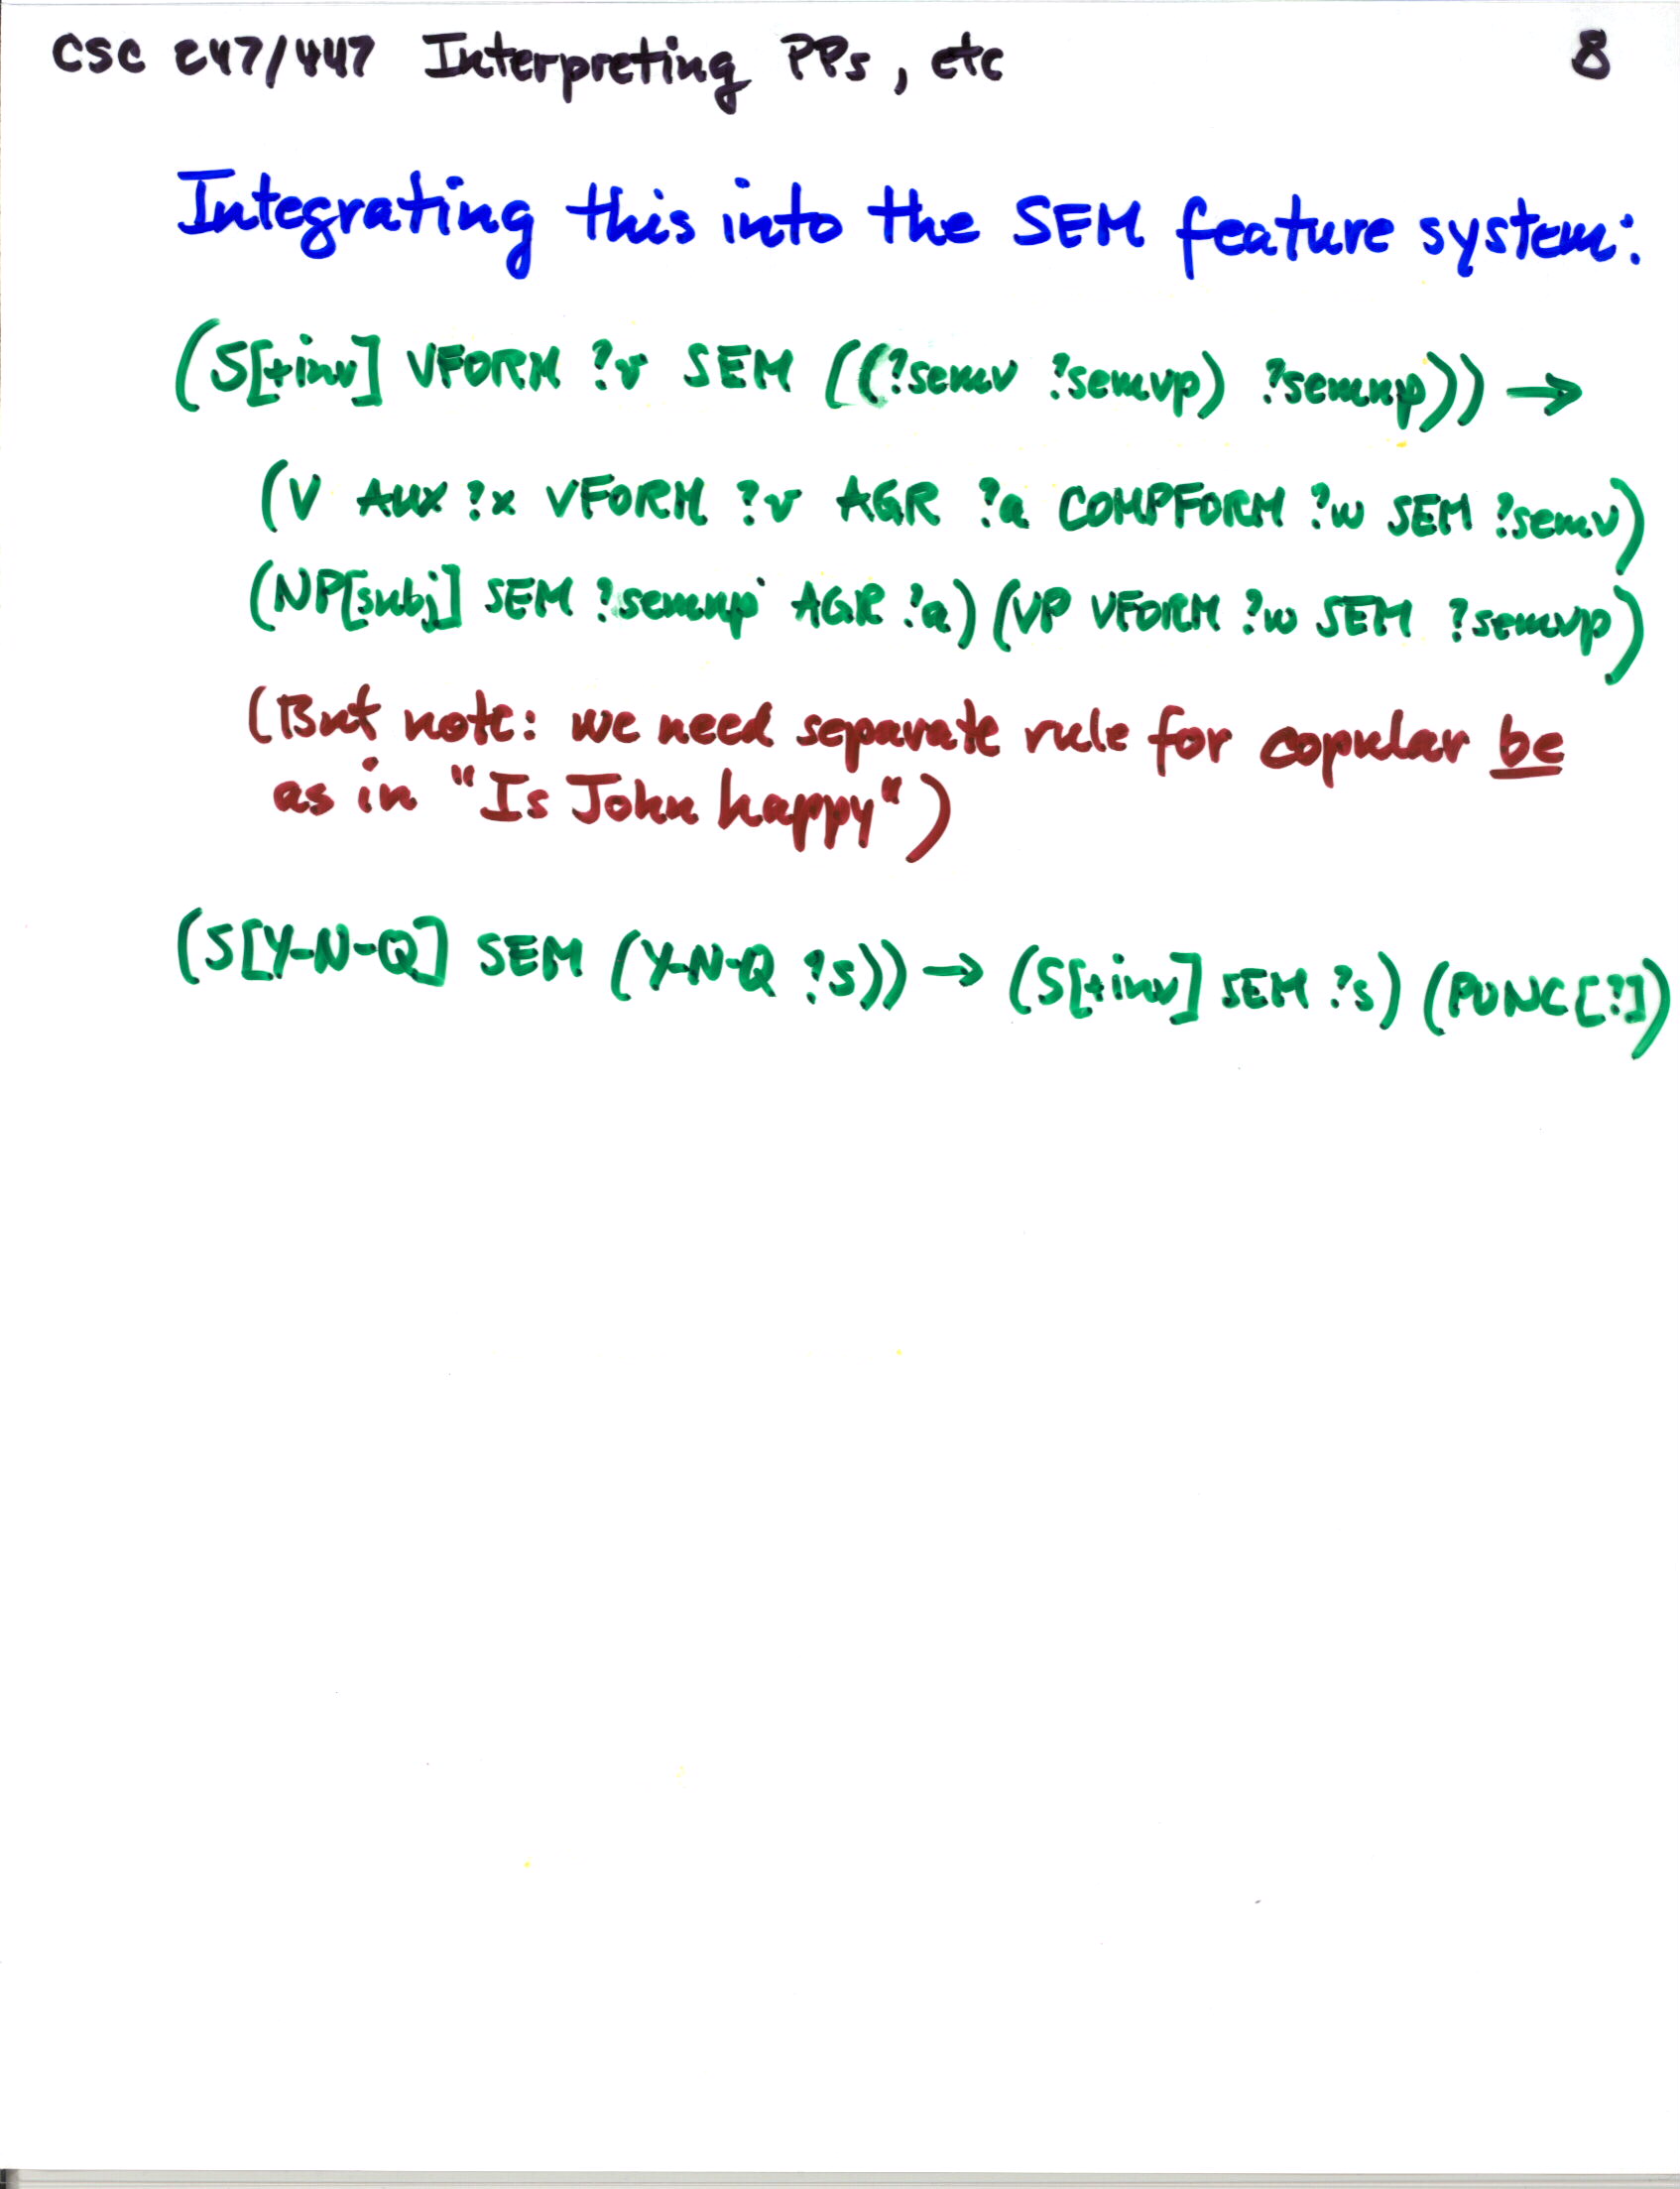 CSC 247/447 Interpreting PPs, etc 8
Integrating this into the SEM feature system:
(S[+inv] VFORM ?v SEM ((?semv ?semvp) ?semnp)) →
(V AUX ?x VFORM ?v AGR ?a COMPFORM ?w SEM ?semv)
(NP[subj] SEM ?semnp AGR ?a) (VP VFORM ?w SEM ?semvp)
(But note: we need separate rule for copular be
as in "Is John happy")
(S[Y-N-Q] SEM (Y-N-Q ?s)) → (S[+inv] SEM ?s) (PUNC [?])